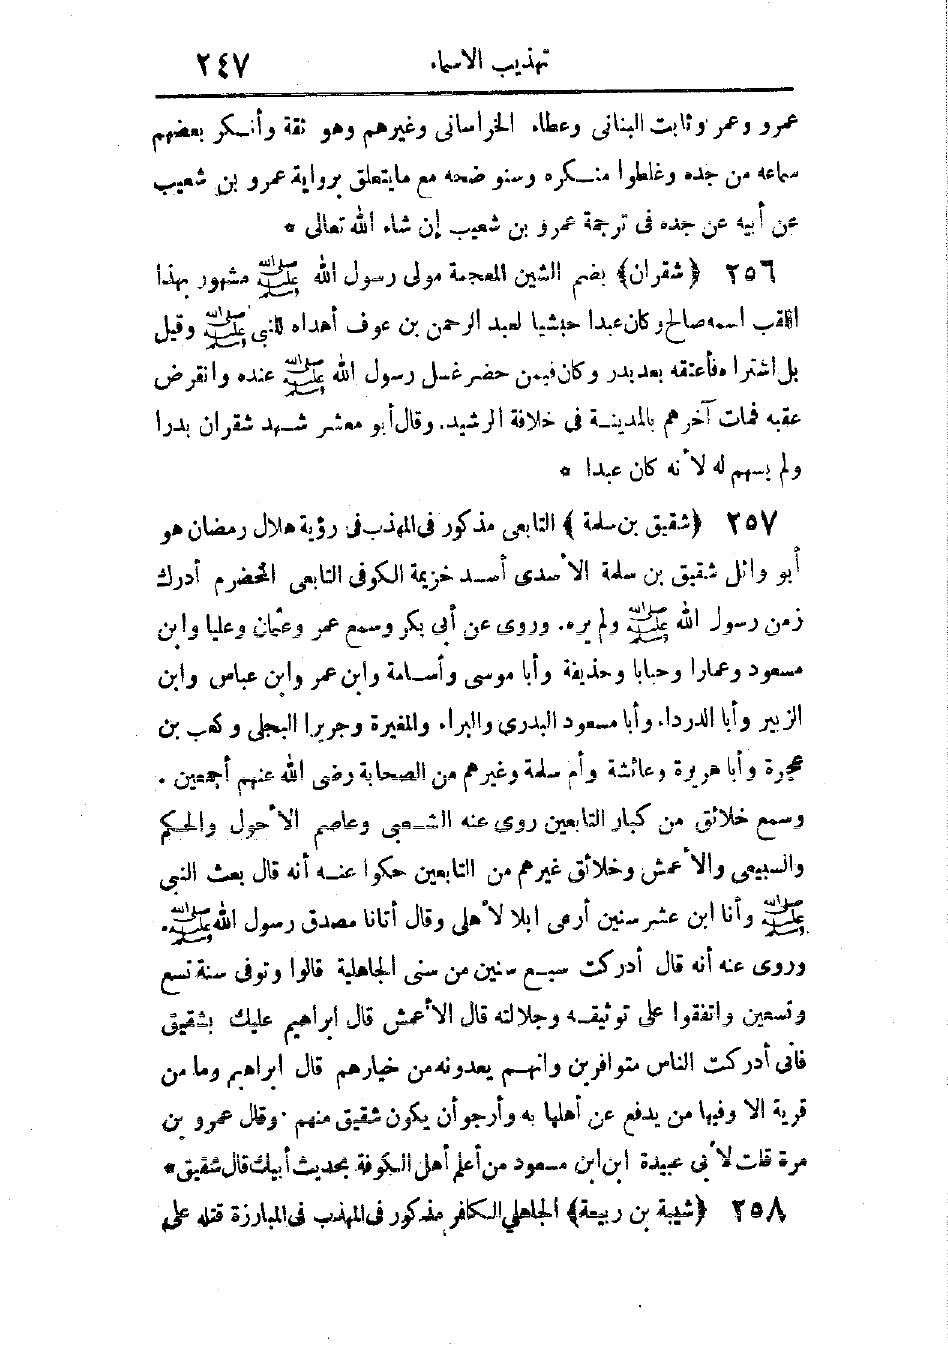 تهذيب الاسماء ٢٤٧
عمرو وعمر وثابت البنانى وعطاء الخراسانى وغيرهم وهو ثقة وأنكر بعضهم
سماعه من جده وغلطوا منكره وسنوضحه مع مايتعلق برواية عمرو بن شعيب
عن أبيه عن جده فى ترجمة عمرو بن شعيب إن شاء الله تعالى *
٢٥٦ (شقران) بضم الشين المعجمة مولى رسول الله ﷺ مشهور بهذا
اللقب اسمه صالح وكان عبدا حبشيا لعبد الرحمن بن عوف أهداه للنبى ﷺ وقيل
بل اشتراه فأعتقه بعد بدر وكان فيمن حضر غسل رسول الله ﷺ عنده وانقرض
عقبه فمات آخرهم بالمدينة فى خلافة الرشيد. وقال أبو معشر شهد شقران بدرا
ولم يسهم له لأنه كان عبدا *
٢٥٧ (شقيق بن سلمة) التابعى مذكور فى المهذب فى رؤية هلال رمضان هو
أبو وائل شقيق بن سلمة الأسدى أسد خزيمة الكوفى التابعى المخضرم أدرك
زمن رسول الله ﷺ ولم يره. وروى عن أبي بكر وسمع عمر وعثمان وعليا وابن
مسعود وعمارا وخبابا وحذيفة وأبا موسى وأسامة وابن عمر وابن عباس وابن
الزبير وأبا الدرداء وأبا مسعود البدرى والبراء والمغيرة وجريرا البجلى وكعب بن
عجرة وأبا هريرة وعائشة وأم سلمة وغيرهم من الصحابة رضى الله عنهم أجمعين .
وسمع خلائق من كبار التابعين روى عنه الشعبى وعاصم الأحول والحكم
والسبيعى والأعمش وخلائق غيرهم من التابعين حكوا عنه أنه قال بعث النبى
ﷺ وأنا ابن عشر سنين أرعى ابلا لأهلى وقال أتانا مصدق رسول الله ﷺ.
وروى عنه أنه قال أدركت سبع سنين من سنى الجاهلية قالوا وتوفى سنة تسع
وتسعين واتفقوا على توثيقه وجلالته قال الأعمش قال ابراهيم عليك بشقيق
فانى أدركت الناس متوافرين وانهم يعدونه من خيارهم قال ابراهيم وما من
قرية الا وفيها من يدفع عن أهلها به وأرجو أن يكون شقيق منهم . وقال عمرو بن
مرة قلت لأبى عبيدة ابن ابن مسعود من أعلم أهل الكوفة بحديث أبيك قال شقيق *
٢٥٨ (شيبة بن ربيعة) الجاهلي الكافر مذكور فى المهذب فى المبارزة قتله على